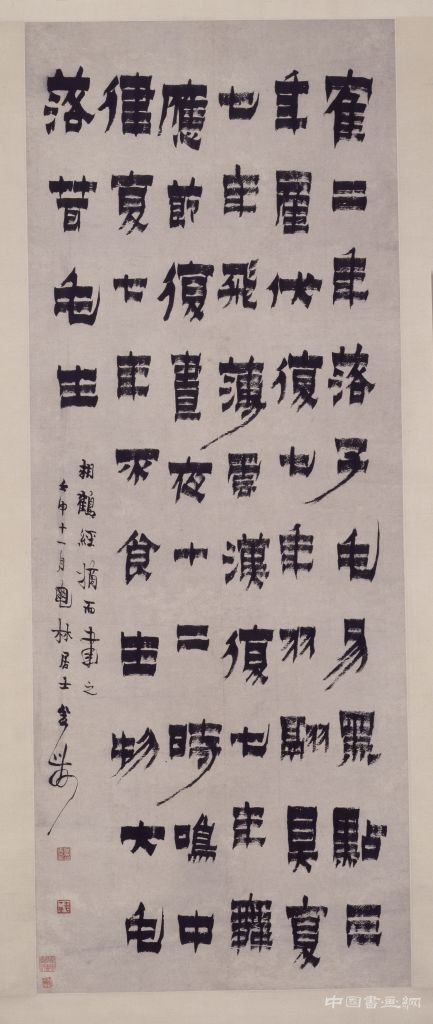 寉二年落子毛易黑點三
年產伏復七年羽翮具复
七年飛薄雲漢復七年舞
應節復晝夜十二時鳴中
律复七年不食生物大毛
落茸毛生
相鶴經摘而書之
壬申十一月 居士金農
中国書畫網